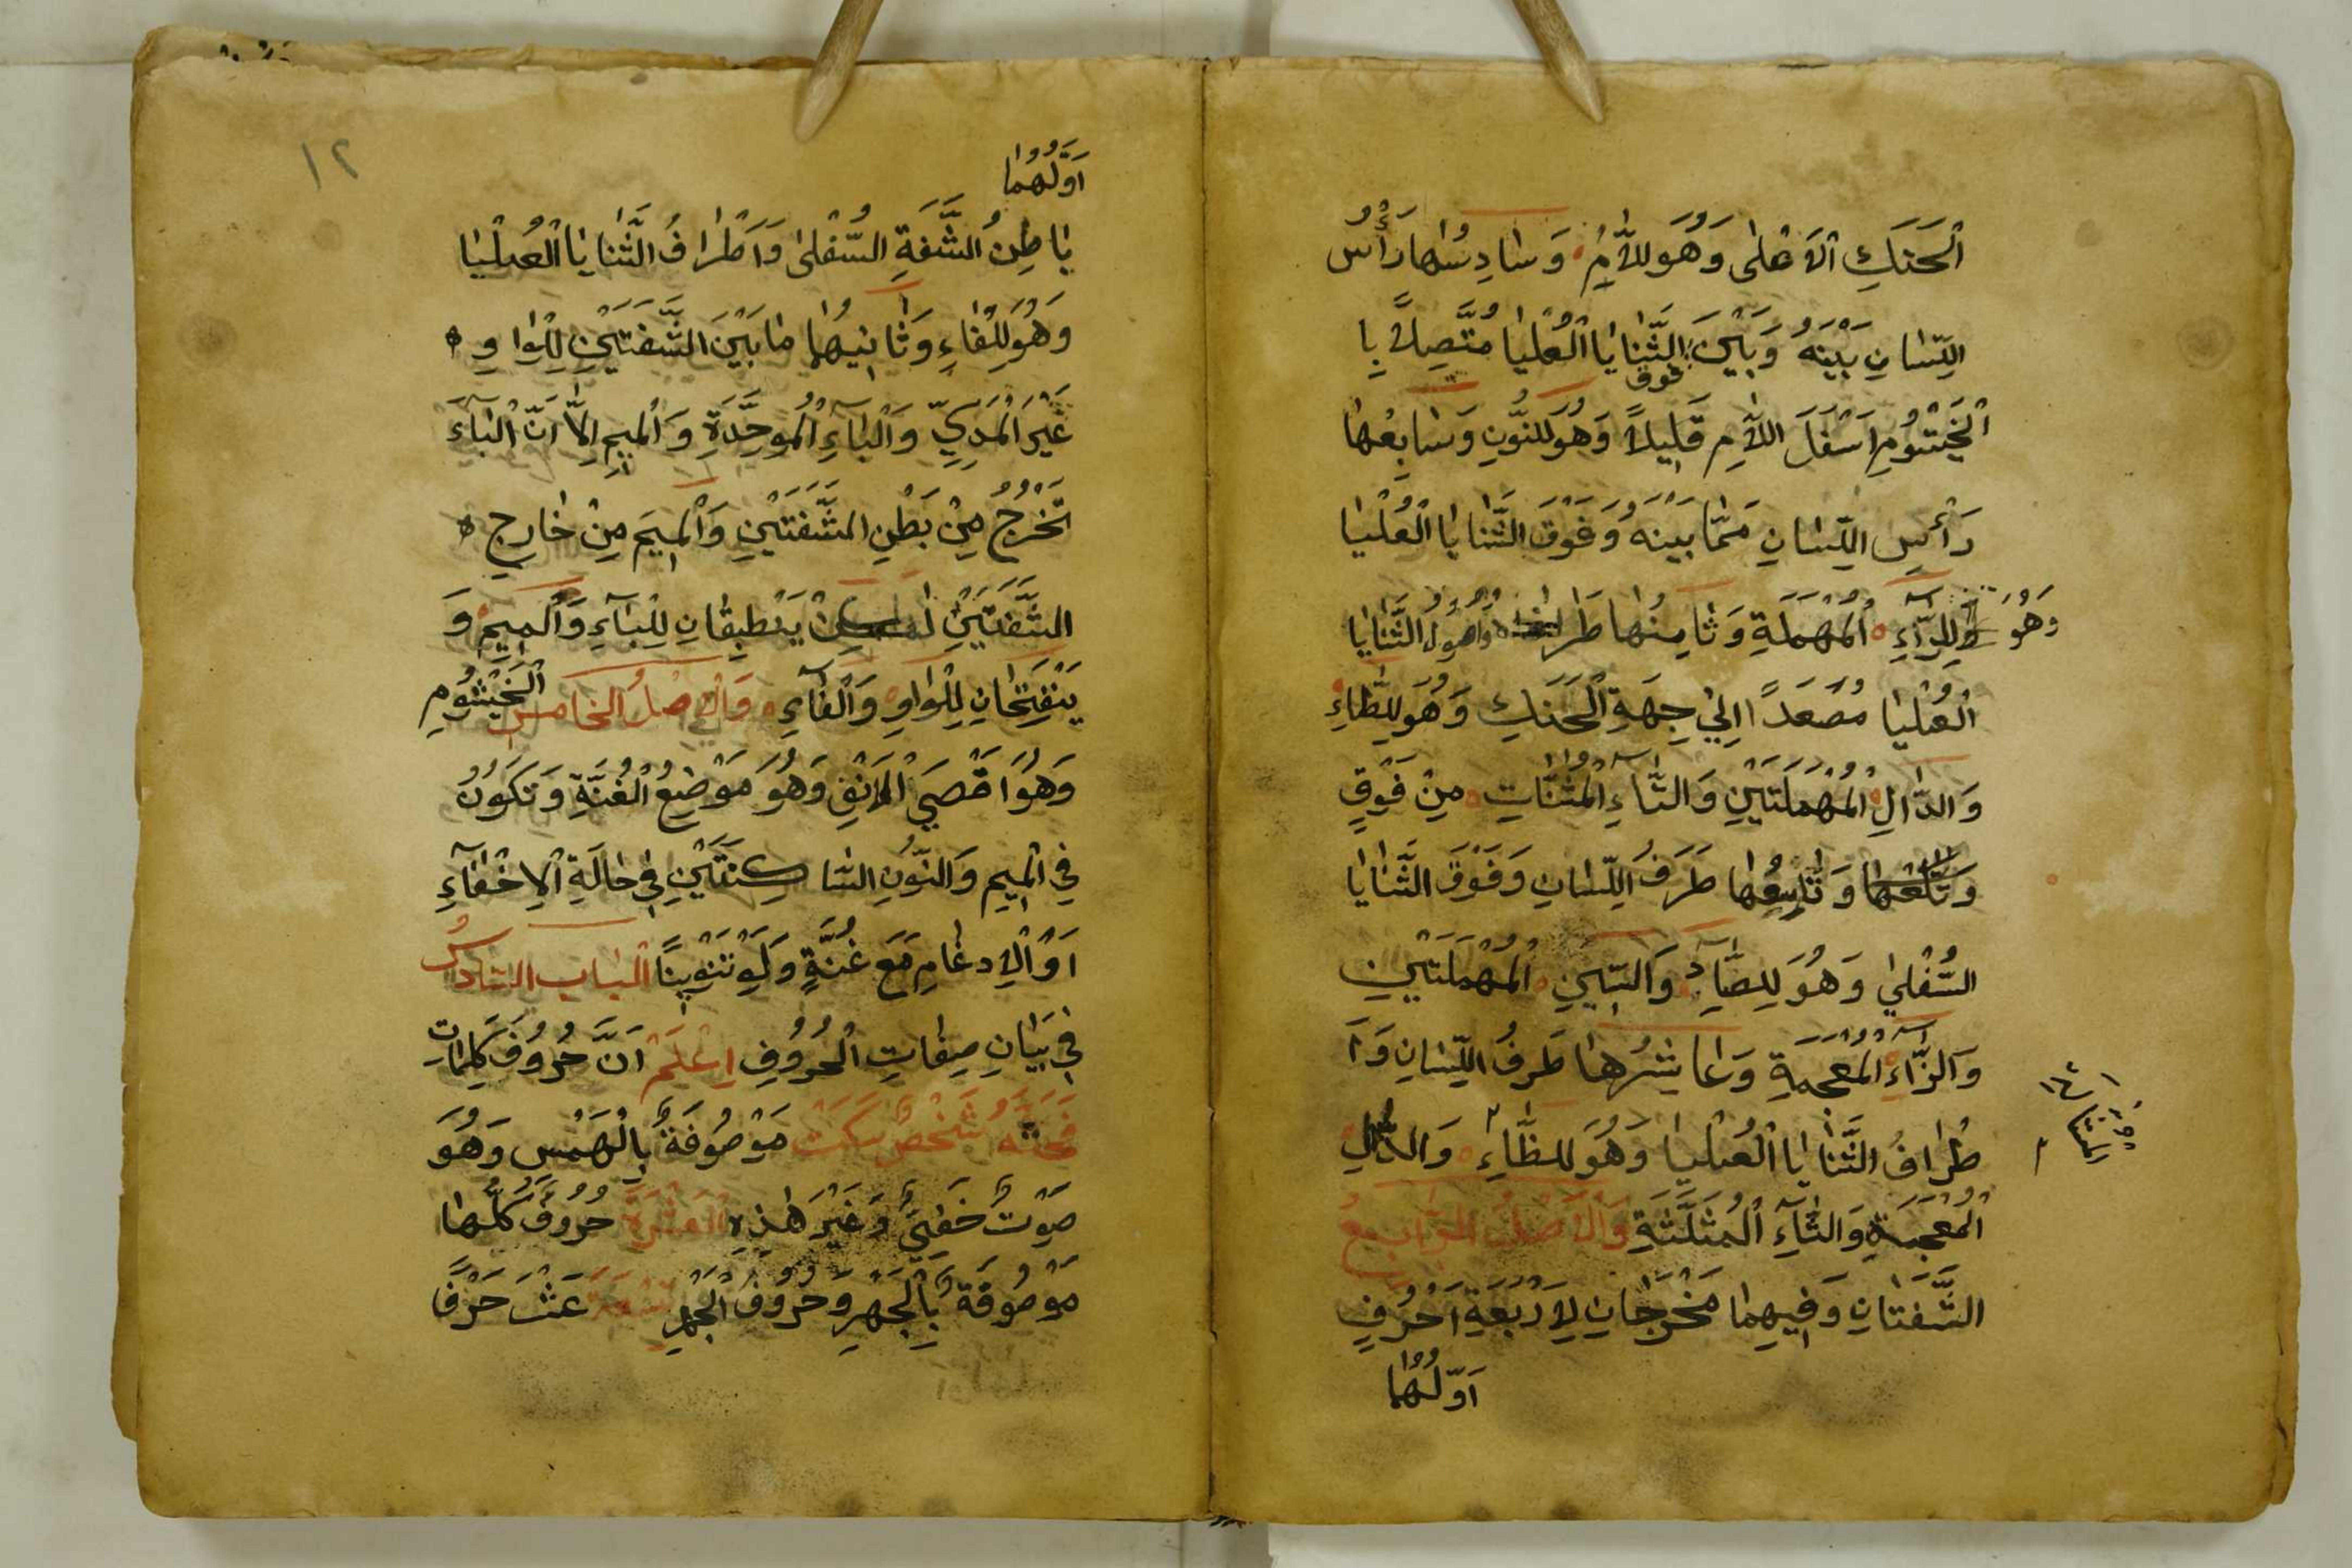 اَلْحَنَكِ اْلاَعْلٰى وَهُوَ لِلاَّمِ وَسٰادِسُهٰا رَأْسُ
اللِّسٰانِ بَيْنَهُ وَبَيْنَ الثَّنٰايٰا الْعُلْيٰا مُتَّصِلاً بِا
فوق
الْخَيْشُومِ اَسْفَلَ اللاَّمِ قَلِيلاً وَهُوَ لِلنُّونِ وَسٰابِعُهٰا
رَأْسِ اللِّسٰانِ مِمّٰا بَيْنَهُ وَفَوْقَ الثَّنٰايٰا الْعُلْيٰا
وَهُوَ لِلرّٰآءِ اْلمُهْمَلَةِ وَثٰامِنُهٰا طَرَ وَاُصُولُ الثَّنٰايٰا
الْعُلْيٰا مُصَعَّدًا اِلىٰ جِهَةِ الْحَنَكِ وَهُوَ لِلطّٰاءِ
وَالدّٰالِ اْلمُهْمَلَتَيْنِ وَالتّٰآءِ اْلمُثَنّٰاتِ مِنْ فَوْقٍ
وَتٰاسِعُهٰا طَرَفُ اللِّسٰانِ وَفَوْقَ الثَّنٰايٰا
السُّفْلىٰ وَهُوَ لِلصّٰادِ وَالسّٖينِ اْلمُهْمَلَتَيْنِ
وَالزّٰآءِ اْلمُعْجَمَةِ وَعٰاشِرُهٰا طَرَفُ اللِّسٰانِ وَاَ
طْرٰافُ الثَّنٰايٰا الْعُلْيٰا وَهُوَ لِلظّٰآءِ وَالذّٰالِ
الْمُعْجَمَةِ وَالثّٰآءِ الْمُثَلَّثَةِ وَاْلاَصْلُ الرّٰابِعُ
الشَّفَتٰانِ وَفٖيهِمٰا مَخْرَجٰانِ لِاَرْبَعَةِ اَحْرُفٍ
اَوَّلُهُمٰا
١٢
اَوَّلُهُمٰا
بٰاطِنُ الشَّفَةِ السُّفْلىٰ وَاَطْرٰافُ الثَّنٰايٰا الْعُلْيٰا
وَهُوَ لِلْفٰاءِ وَثٰانٖيهُمٰا مٰا بَيْنَ الشَّفَتَيْنِ لِلْوٰاوِ
غَيْرَ الْمَدِّيِّ وَالْبٰآءِ الْمُوَحَّدَةِ وَالْمٖيمِ اِلاّٰ اَنَّ الْبٰآءَ
تَخْرُجُ مِنْ بَطْنِ الشَّفَتَيْنِ وَالْمٖيمَ مِنْ خٰارِجِ
الشَّفَتَيْنِ يَنْطَبِقٰانِ لِلْبٰآءِ وَالْمٖيمِ وَ
يَنْفَتِحٰانِ لِلْوٰاوِ وَالْفٰآءِ وَاْلاَصْلُ الْخٰامِسُ الْخَيْشُومِ
وَهُوَ اَقْصَى اْلاَنْفِ وَهُوَ مَوْضِعُ الْغُنَّةِ وَتَكُونُ
فِى الْمٖيمِ وَالنُّونِ السّٰاكِنَتَيْنِ فٖى حٰالَةِ اْلاِخْفٰآءِ
اَوِ اْلاِدْغٰامِ مَعَ غُنَّةٍ وَلَوْ تَنْوٖينًا الْبٰابُ السّٰادِسُ
فٖى بَيٰانِ صِفٰاتِ الْحُرُوفِ اِعْلَمْ اَنَّ حُرُوفَ كَلِمٰاتِ
فَحَثَّهُ شَخْصٌ سَكَتَ مَوْصُوفَةٌ بِالْهَمْسِ وَهُوَ
صَوْتٌ خَفِىٌّ وَغَيْرَ هٰذِهِ الْعَشَرَةِ حُرُوفٌ كُلُّهٰا
مَوْصُوفَةٌ بِالْجَهْرِ وَحُرُوفُ الْجَهْرِ تِسْعَةَ عَشَرَ حَرْفً